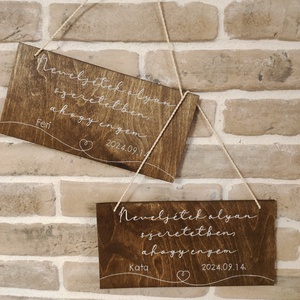 Neveljétek olyan
szeretetben,
ahogy engem
Feri
2024.09.
Neveljétek olyan
szeretetben,
ahogy engem
Kata
2024.09.14.